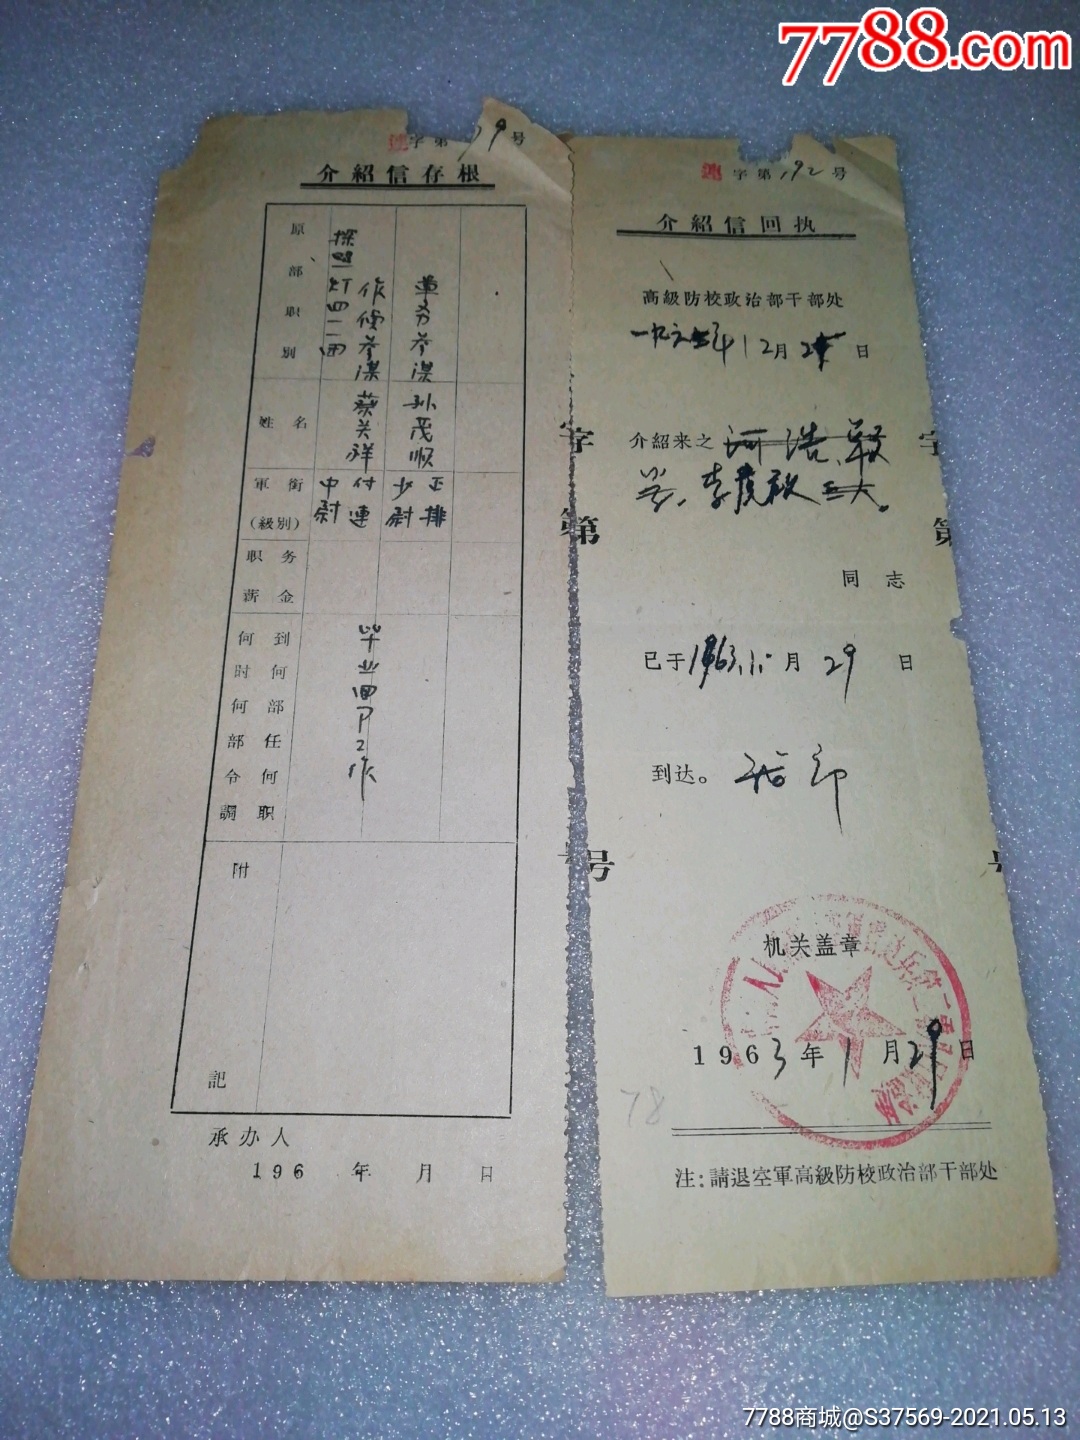 7788.com
速字第 19号
介紹信存根
原部职别
探照灯四一二团
作侦参谋
軍务参谋
姓名
蔡关祥
孙茂顺
軍衔(級別)
中尉
付連
少尉
正排
职务薪金
何时何部令調
到何部任何职
毕业回户工作
附記
承办人
196 年 月 日
速字第192号
介紹信回执
高級防校政治部干部处
12月 日
介紹来之
同志
已于1963.1.月29日
到达。
字第号
机关盖章
1963年1月29日
78
注:請退空軍高級防校政治部干部处
7788商城@S37569-2021.05.13